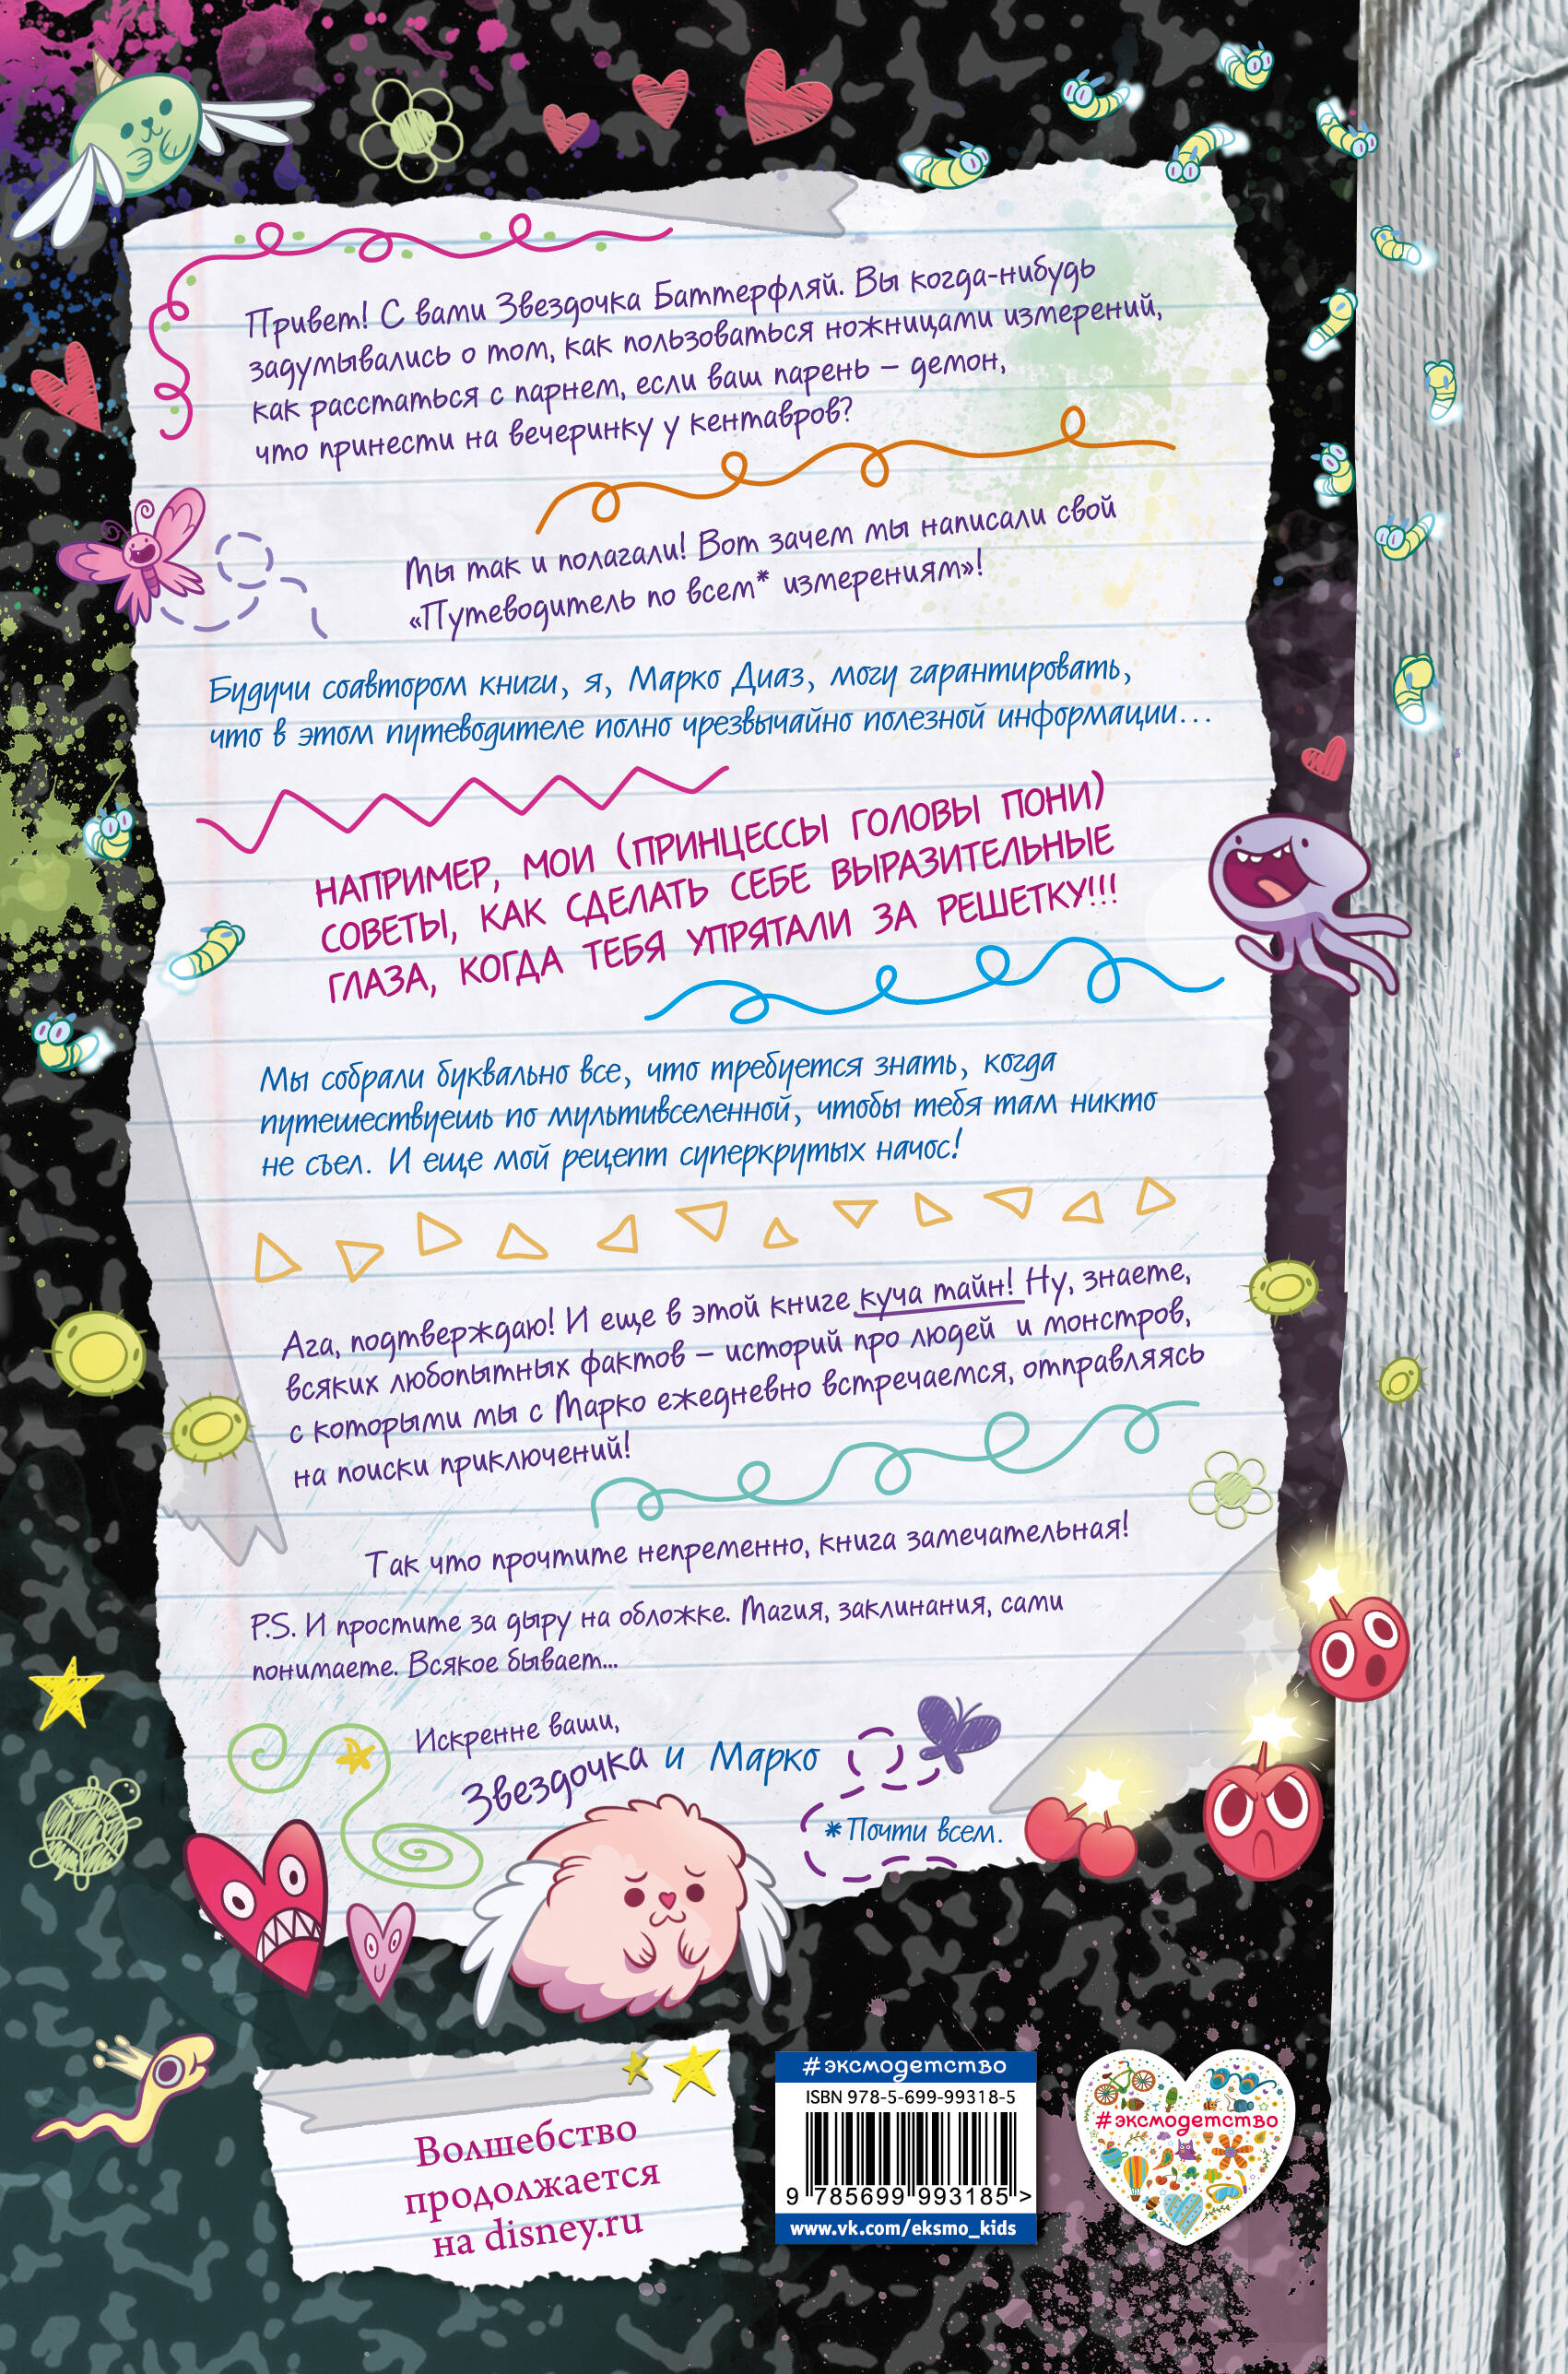 Привет! С вами Звездочка Баттерфляй. Вы когда-нибудь
задумывались о том, как пользоваться ножницами измерений,
как расстаться с парнем, если ваш парень – демон,
что принести на вечеринку у кентавров?
Мы так и полагали! Вот зачем мы написали свой
«Путеводитель по всем* измерениям»!
Будучи соавтором книги, я, Марко Диаз, могу гарантировать,
что в этом путеводителе полно чрезвычайно полезной информации...
НАПРИМЕР, МОИ (ПРИНЦЕССЫ ГОЛОВЫ ПОНИ)
СОВЕТЫ, КАК СДЕЛАТЬ СЕБЕ ВЫРАЗИТЕЛЬНЫЕ
ГЛАЗА, КОГДА ТЕБЯ УПРЯТАЛИ ЗА РЕШЕТКУ!!!
Мы собрали буквально все, что требуется знать, когда
путешествуешь по мультивселенной, чтобы тебя там никто
не съел. И еще мой рецепт суперкрутых начос!
Ага, подтверждаю! И еще в этой книге куча тайн! Ну, знаете,
всяких любопытных фактов – историй про людей и монстров,
с которыми мы с Марко ежедневно встречаемся, отправляясь
на поиски приключений!
Так что прочтите непременно, книга замечательная!
P.S. И простите за дыру на обложке. Магия, заклинания, сами
понимаете. Всякое бывает...
Искренне ваши,
Звездочка и Марко
*Почти всем.
Волшебство
продолжается
на disney.ru
#эксмодетство
ISBN 978-5-699-99318-5
9 785699 993185 >
www.vk.com/eksmo_kids
#эксмодетство